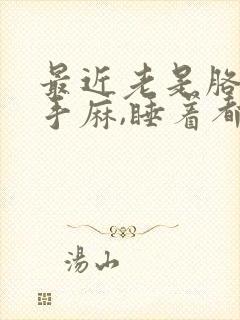 最近老是胳
手麻,睡着都
湯山